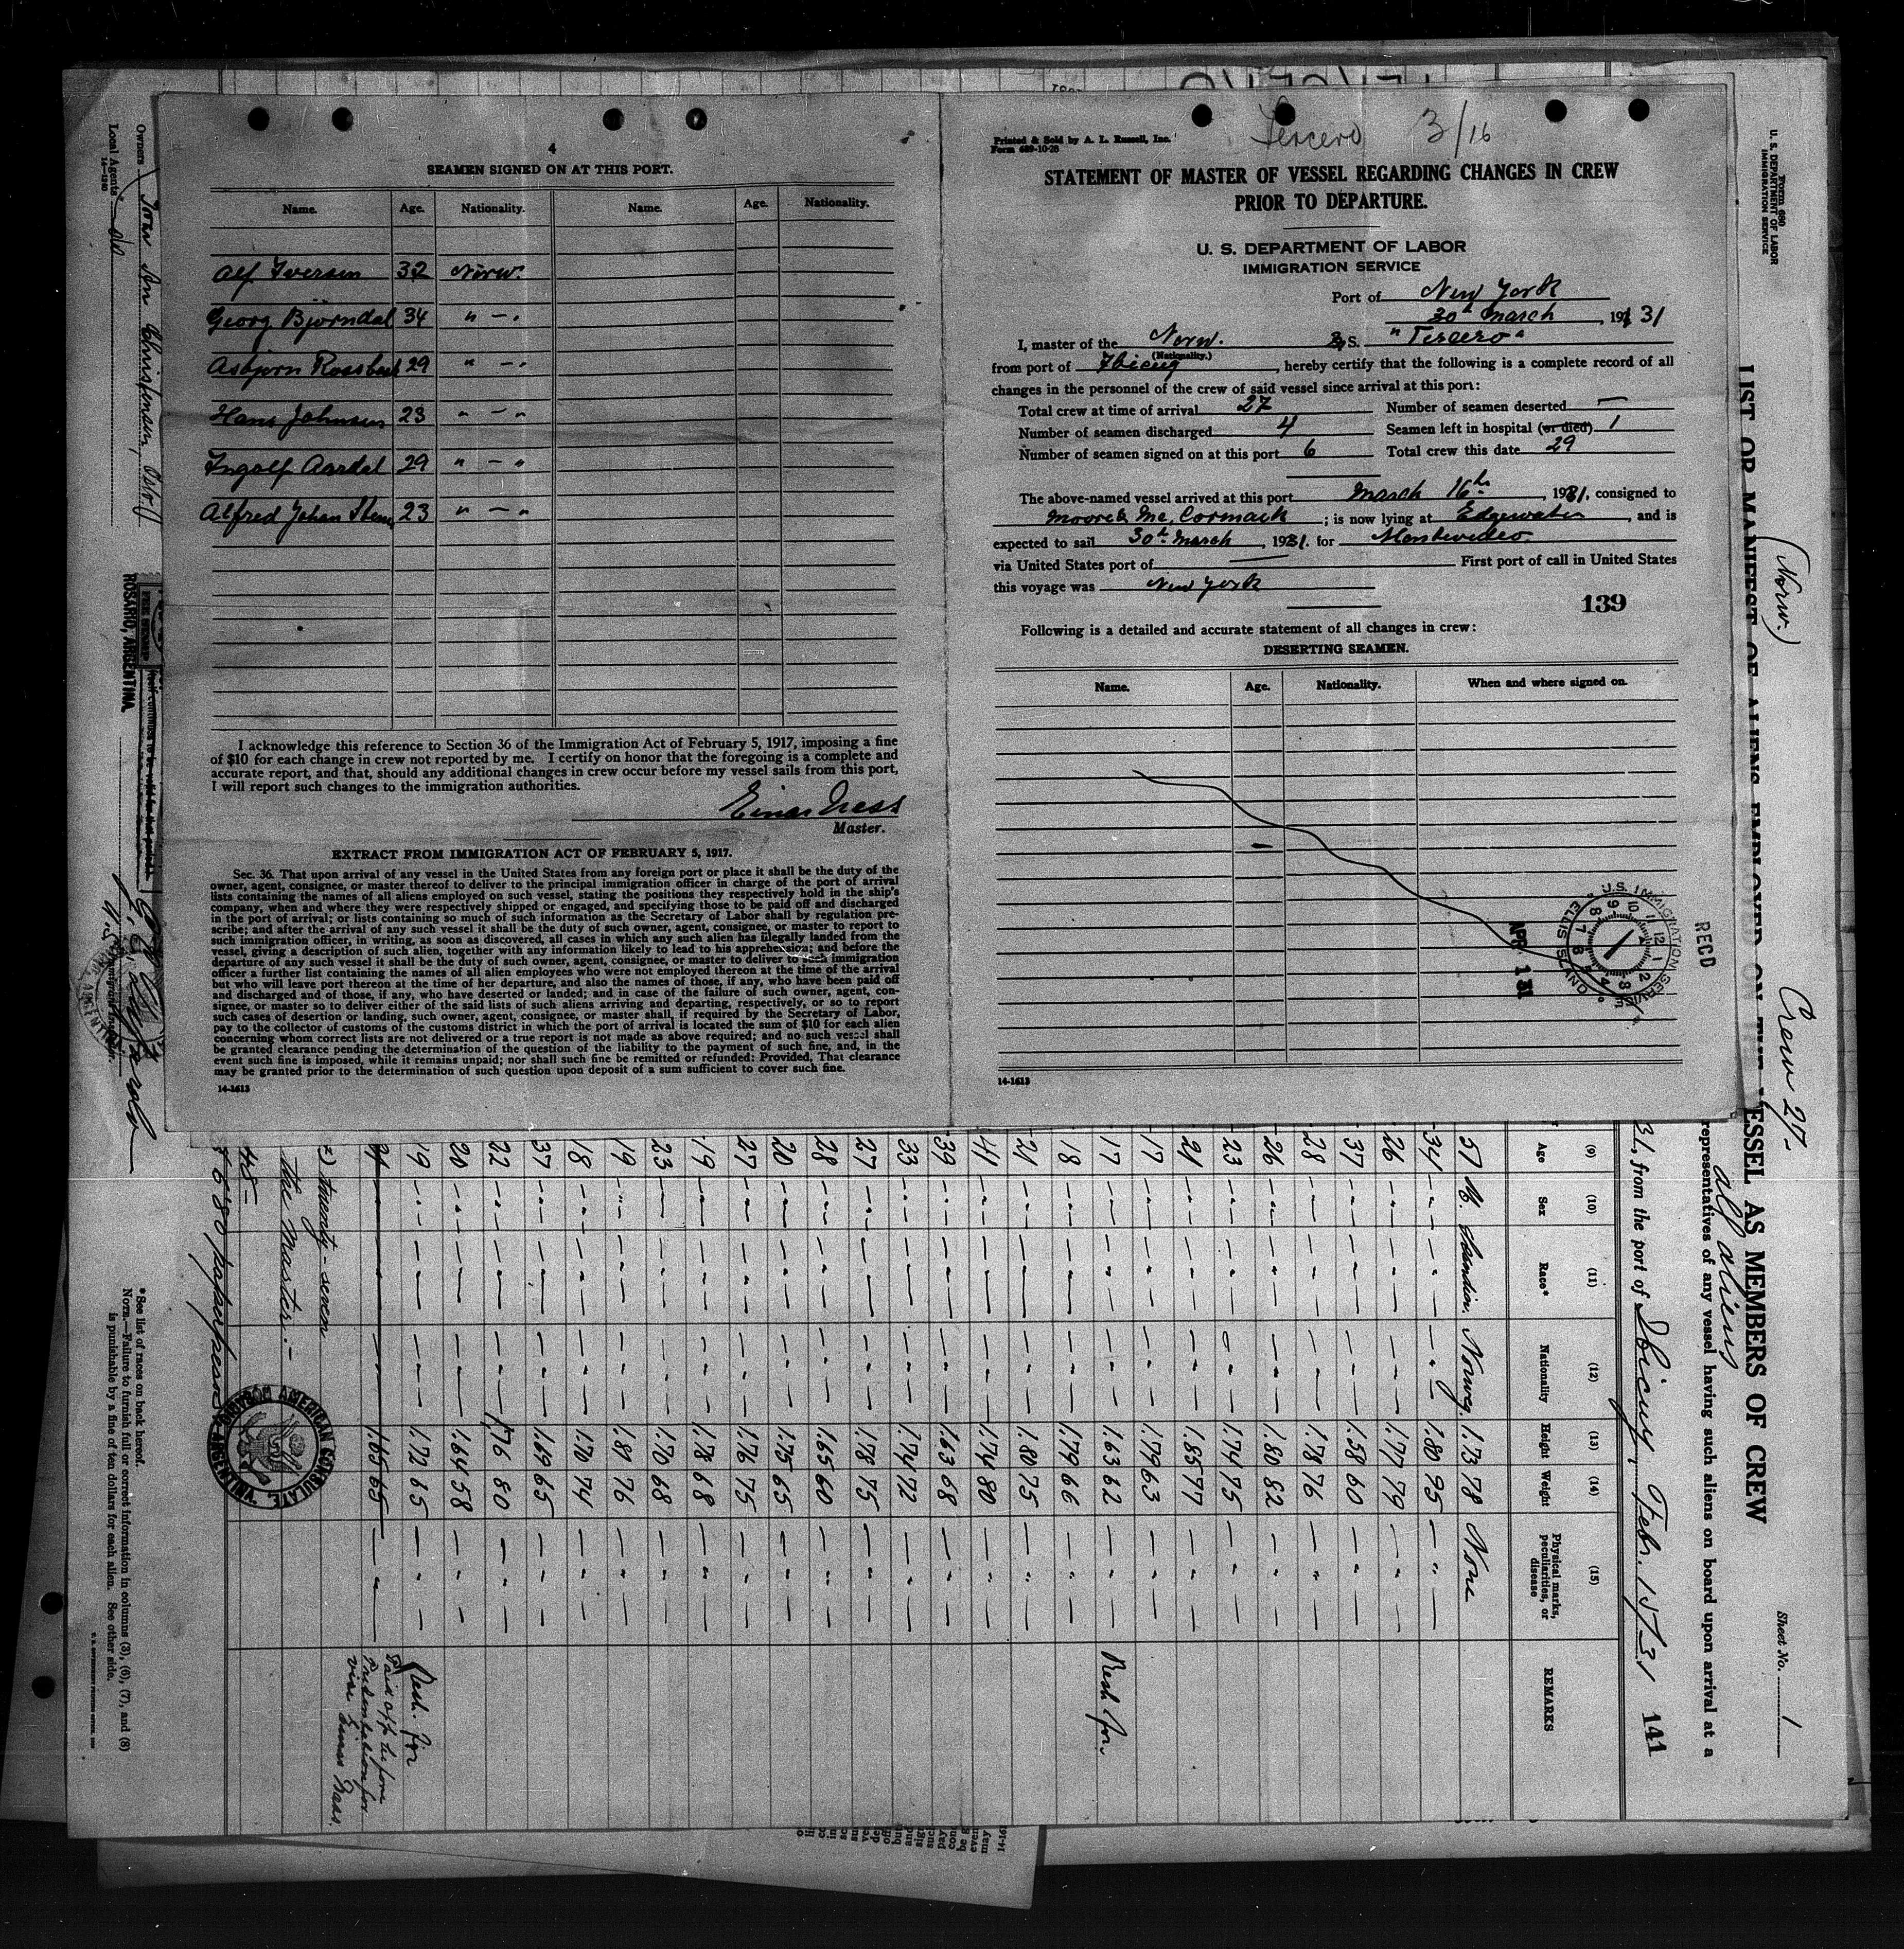 4
SEAMEN SIGNED ON AT THIS PORT.
Name. Age. Nationality. Name. Age. Nationality.
Alf Iversen 32 Norw.
Georg Bjørndal 34 " - "
Asbjørn 29 " - "
Hans Johnsen 23 " - "
Ingolf Aardal 29 " - "
Alfred Johan 23 " - "
I acknowledge this reference to Section 36 of the Immigration Act of February 5, 1917, imposing a fine
of $10 for each change in crew not reported by me. I certify on honor that the foregoing is a complete and
accurate report, and that, should any additional changes in crew occur before my vessel sails from this port,
I will report such changes to the immigration authorities.
Einar Næss
Master.
EXTRACT FROM IMMIGRATION ACT OF FEBRUARY 5, 1917.
Sec. 36. That upon arrival of any vessel in the United States from any foreign port or place it shall be the duty of the
owner, agent, consignee, or master thereof to deliver to the principal immigration officer in charge of the port of arrival
lists containing the names of all aliens employed on such vessel, stating the positions they respectively hold in the ship's
company, when and where they were respectively shipped or engaged, and specifying those to be paid off and discharged
in the port of arrival; or lists containing so much of such information as the Secretary of Labor shall by regulation pre-
scribe; and after the arrival of any such vessel it shall be the duty of such owner, agent, consignee, or master to report to
such immigration officer, in writing, as soon as discovered, all cases in which any such alien has illegally landed from the
vessel, giving a description of such alien, together with any information likely to lead to his apprehension; and before the
departure of any such vessel it shall be the duty of such owner, agent, consignee, or master to deliver to such immigration
officer a further list containing the names of all alien employees who were not employed thereon at the time of the arrival
but who will leave port thereon at the time of her departure, and also the names of those, if any, who have been paid off
and discharged and of those, if any, who have deserted or landed; and in case of the failure of such owner, agent, con-
signee, or master so to deliver either of the said lists of such aliens arriving and departing, respectively, or so to report
such cases of desertion or landing, such owner, agent, consignee, or master shall, if required by the Secretary of Labor,
pay to the collector of customs of the customs district in which the port of arrival is located the sum of $10 for each alien
concerning whom correct lists are not delivered or a true report is not made as above required; and no such vessel shall
be granted clearance pending the determination of the question of the liability to the payment of such fine, and, in the
event such fine is imposed, while it remains unpaid; nor shall such fine be remitted or refunded: Provided, That clearance
may be granted prior to the determination of such question upon deposit of a sum sufficient to cover such fine.
14-1613
Printed & Sold by A. L. Russell, Inc.
Form 689-10-28
Tercero 3/16
STATEMENT OF MASTER OF VESSEL REGARDING CHANGES IN CREW
PRIOR TO DEPARTURE.
U. S. DEPARTMENT OF LABOR
IMMIGRATION SERVICE
Port of New York
30th March, 1931
I, master of the Norw. S. "Tercero"
(Nationality.)
from port of Ibicuy, hereby certify that the following is a complete record of all
changes in the personnel of the crew of said vessel since arrival at this port:
Total crew at time of arrival 27 Number of seamen deserted —
Number of seamen discharged 4 Seamen left in hospital (or died) 1
Number of seamen signed on at this port 6 Total crew this date 29
The above-named vessel arrived at this port March 16th, 1931, consigned to
Moore & Mc. Cormack; is now lying at Edgewater, and is
expected to sail 30th March, 1931. for Montevideo.
via United States port of — First port of call in United States
this voyage was New York
139
Following is a detailed and accurate statement of all changes in crew:
DESERTING SEAMEN.
Name. Age. Nationality. When and where signed on.
U.S. IMMIGRATION SERVICE
ELLIS ISLAND
APR 1 31
RECD
14-1613
Form 680
U. S. DEPARTMENT OF LABOR
IMMIGRATION SERVICE
(Norw.) Crew 27-
Sheet No. 1
LIST OR MANIFEST OF ALIENS EMPLOYED ON THE VESSEL AS MEMBERS OF CREW
all aliens
representatives of any vessel having such aliens on board upon arrival at a
31, from the port of Ibicuy, Febr. 15/31 141
(9) (10) (11) (12) (13) (14) (15)
Age Sex Race* Nationality Height Weight Physical marks, peculiarities, or disease REMARKS
51 M. Scandin. Norweg. 1.73 78 None
34 1.80 95
26 1.77 79
37 1.58 60
28 1.78 76
26 1.80 82
23 1.74 75
21 1.85 77
17 1.79 63
17 1.63 62
18 1.79 66
21 1.80 75
41 1.74 80
39 1.63 68
33 1.74 72
27 1.78 75
28 1.65 60
20 1.75 65
27 1.76 75
19 1.78 68
23 1.70 68
19 1.81 76
18 1.70 74
37 1.69 65
22 1.76 80
20 1.64 58
19 1.72 65
21 1.65 65
Paid off before
Presentation for
vise Einar Næss.
twenty-seven
the Master:-
AMERICAN CONSULATE
ROSARIO, ARGENTINA
*See list of races on back hereof.
NOTE.—Failure to furnish full or correct information in columns (3), (6), (7), and (8)
is punishable by a fine of ten dollars for each alien. See other side.
Owners Ivar An Christensen, Oslo
Local Agents
14—1240
ROSARIO, ARGENTINA.